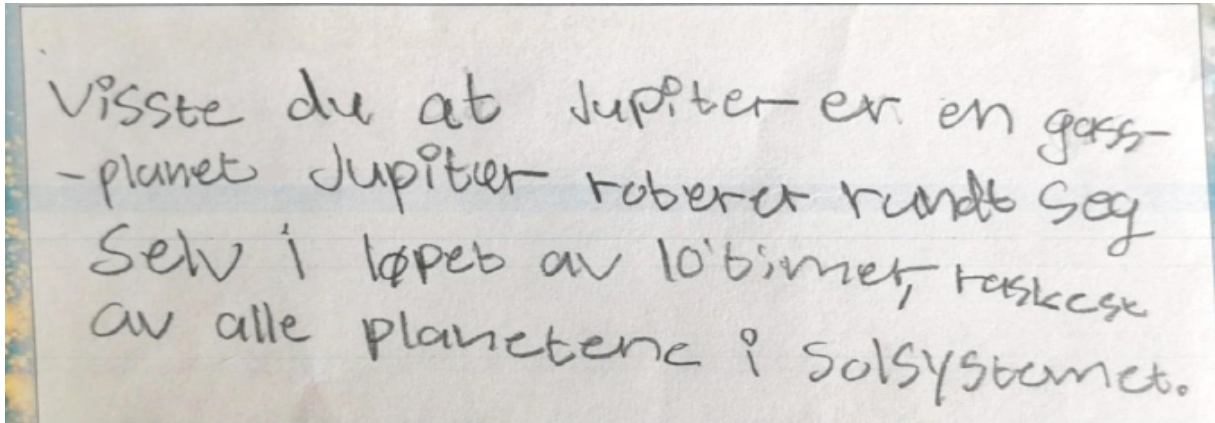 Visste du at Jupiter er en gass-
-planet Jupiter roterer rundt seg
Selv i løpet av 10 timer, raskest
av alle planetene i Solsystemet.